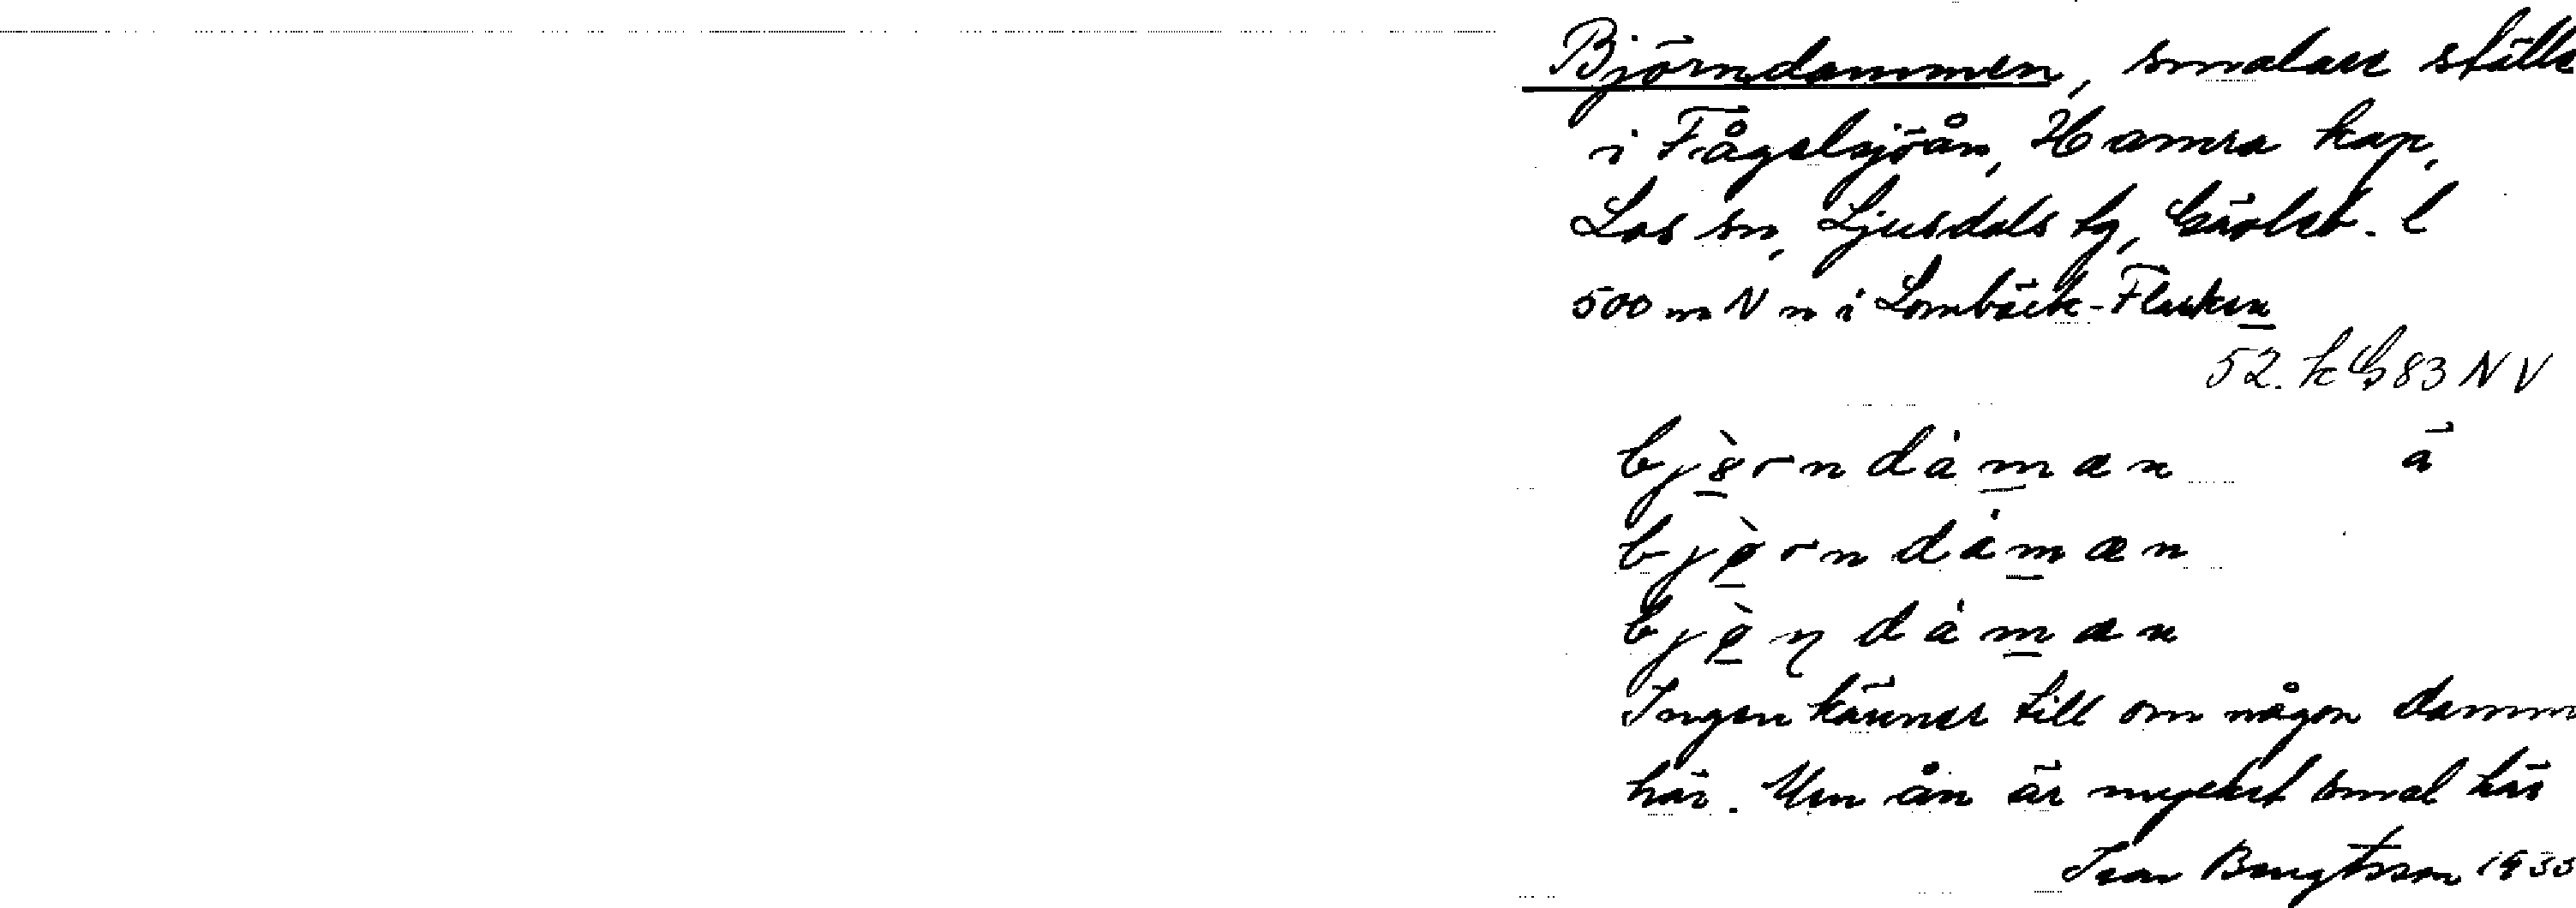 Björndammen, smalare ställe
i Fågelsjöån, Hamra kap,
Los sn, Ljusdals tg, Gävleb. l
500 m N n i Lombäck-Flarken
52. k G 83 NV
bjòrndàman a
bjørndàmæn
bjøndàman
Ingen känner till om någon damm
här. Men ån är mycket smal här
Ivar Bengtsson 1935